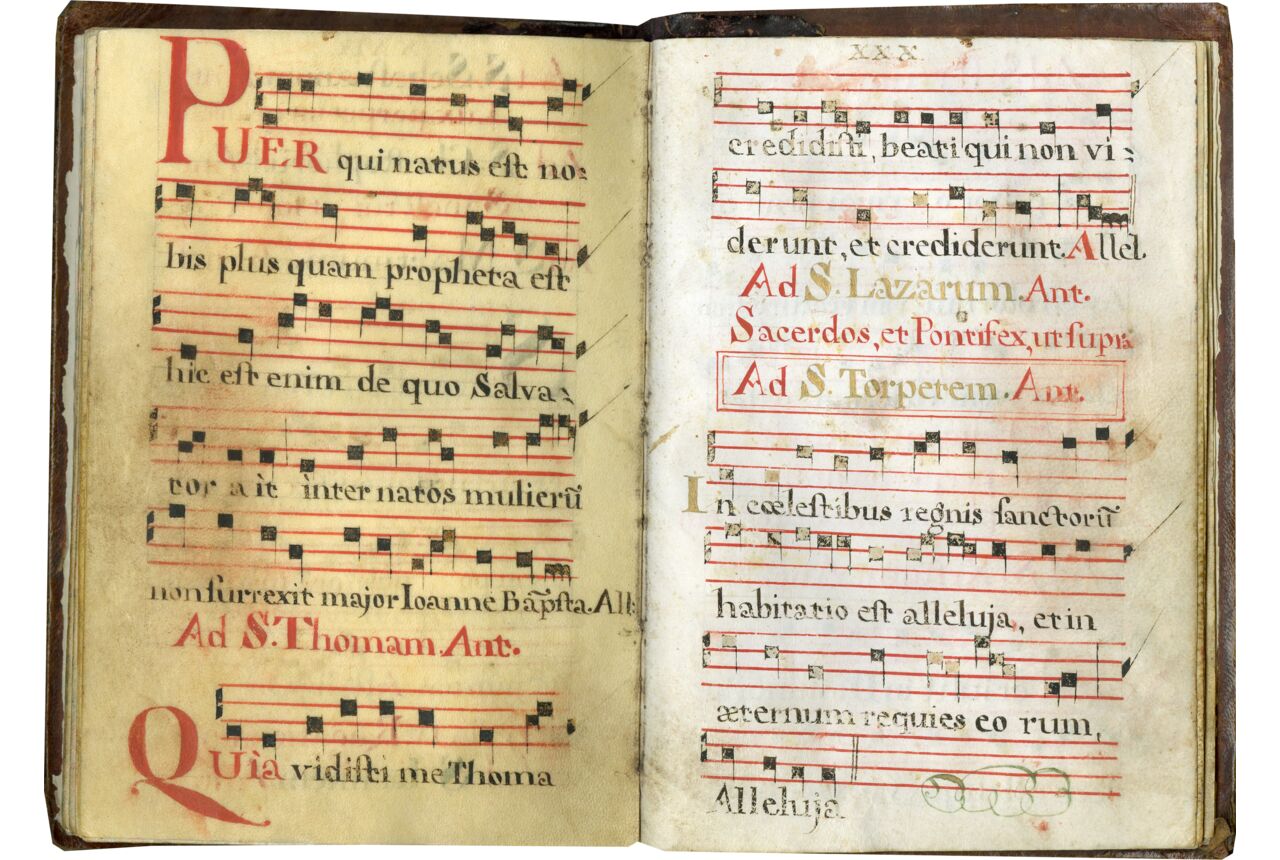 PUER qui natus est no:
bis plus quam propheta est
hic est enim de quo Salva:
tor a it inter natos mulierū
non surrexit major Ioanne Bap̃sta. All:
Ad S. Thomam. Ant.
QUìa vidisti me Thoma
XXX
credidisti, beati qui non vi:
derunt, et crediderunt. Allel.
Ad S. Lazarum. Ant.
Sacerdos, et Pontifex, ut supra
Ad S. Torpetem. Ant.
In cœlestibus regnis sanctorū
habitatio est alleluja, et in
æternum requies eo rum,
Alleluja